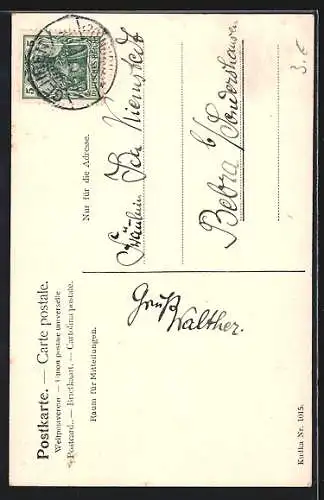 Postkarte. — Carte postale.
Weltpostverein — Union postale universelle
Postcard. — Briefkaart. — Cartolina postale.
Raum für Mitteilungen.
Gruß
Walther.
Nur für die Adresse.
5 5
DEUTSCHES REICH
Fräulein
Bebra b/Sondershausen
Kutka Nr. 1015.
3.€